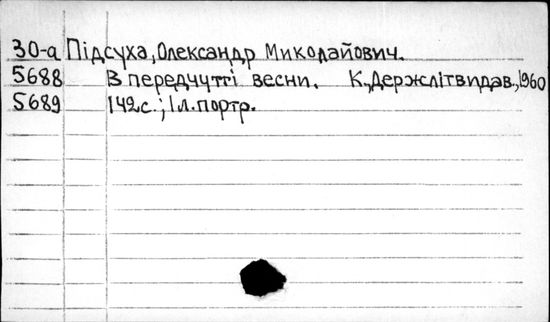 30-а Підсуха, Олександр Миколайович.
5688 В передчутті весни. К., Держлітвидав., 1960
5689 142с.; 1 л. портр.